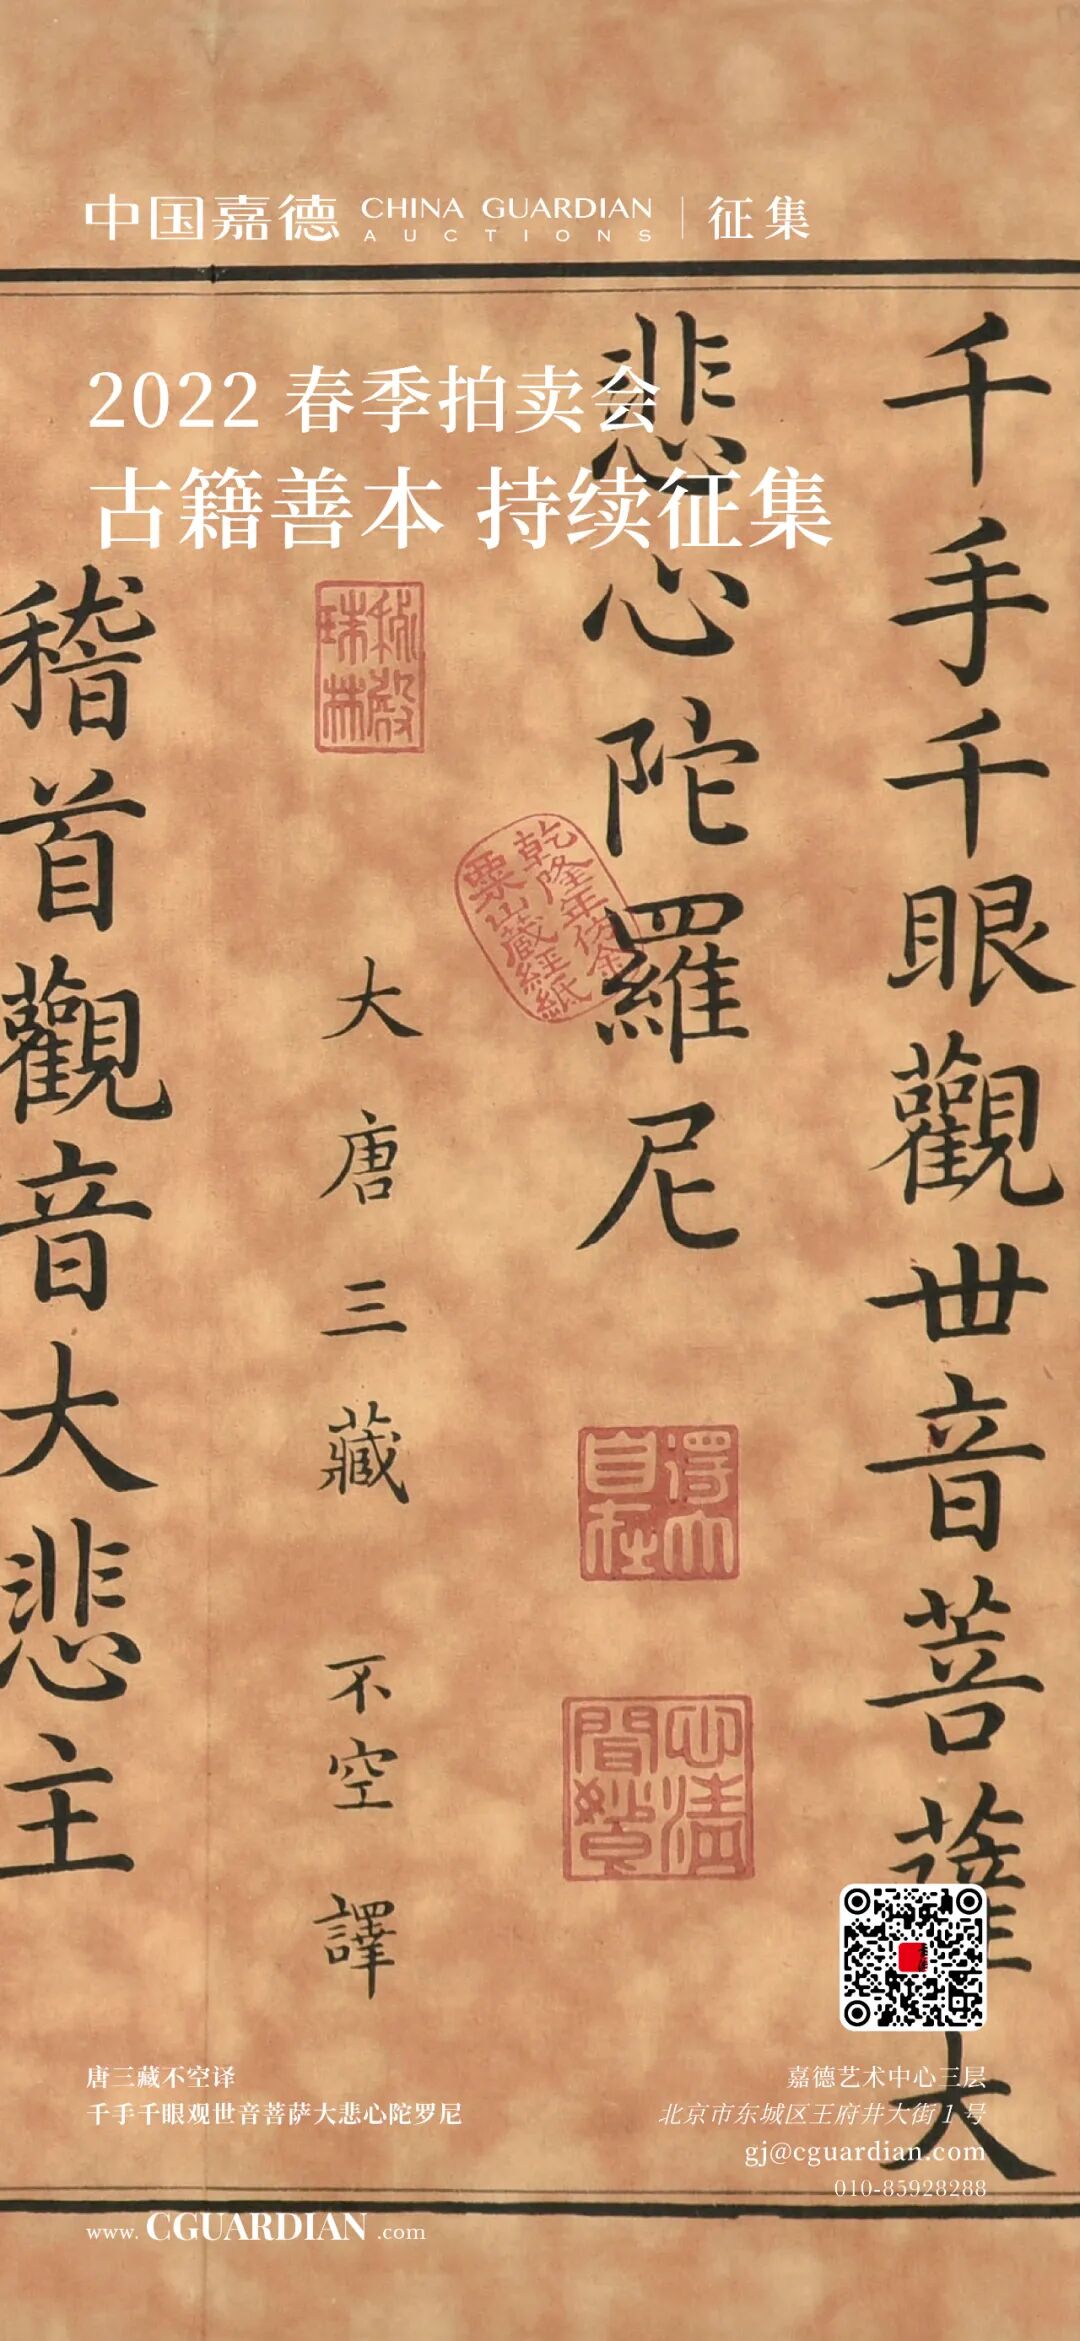 中国嘉德 CHINA GUARDIAN AUCTIONS | 征集
2022 春季拍卖会
古籍善本 持续征集
千手千眼觀世音菩薩大
悲心陀羅尼
大唐三藏 不空 譯
稽首觀音大悲主
秘殿
珠林
乾隆年仿金
粟山藏經紙
得大
自在
心清
聞妙
唐三藏不空译
千手千眼观世音菩萨大悲心陀罗尼
嘉德艺术中心三层
北京市东城区王府井大街 1 号
gj@cguardian.com
010-85928288
www.CGUARDIAN.com